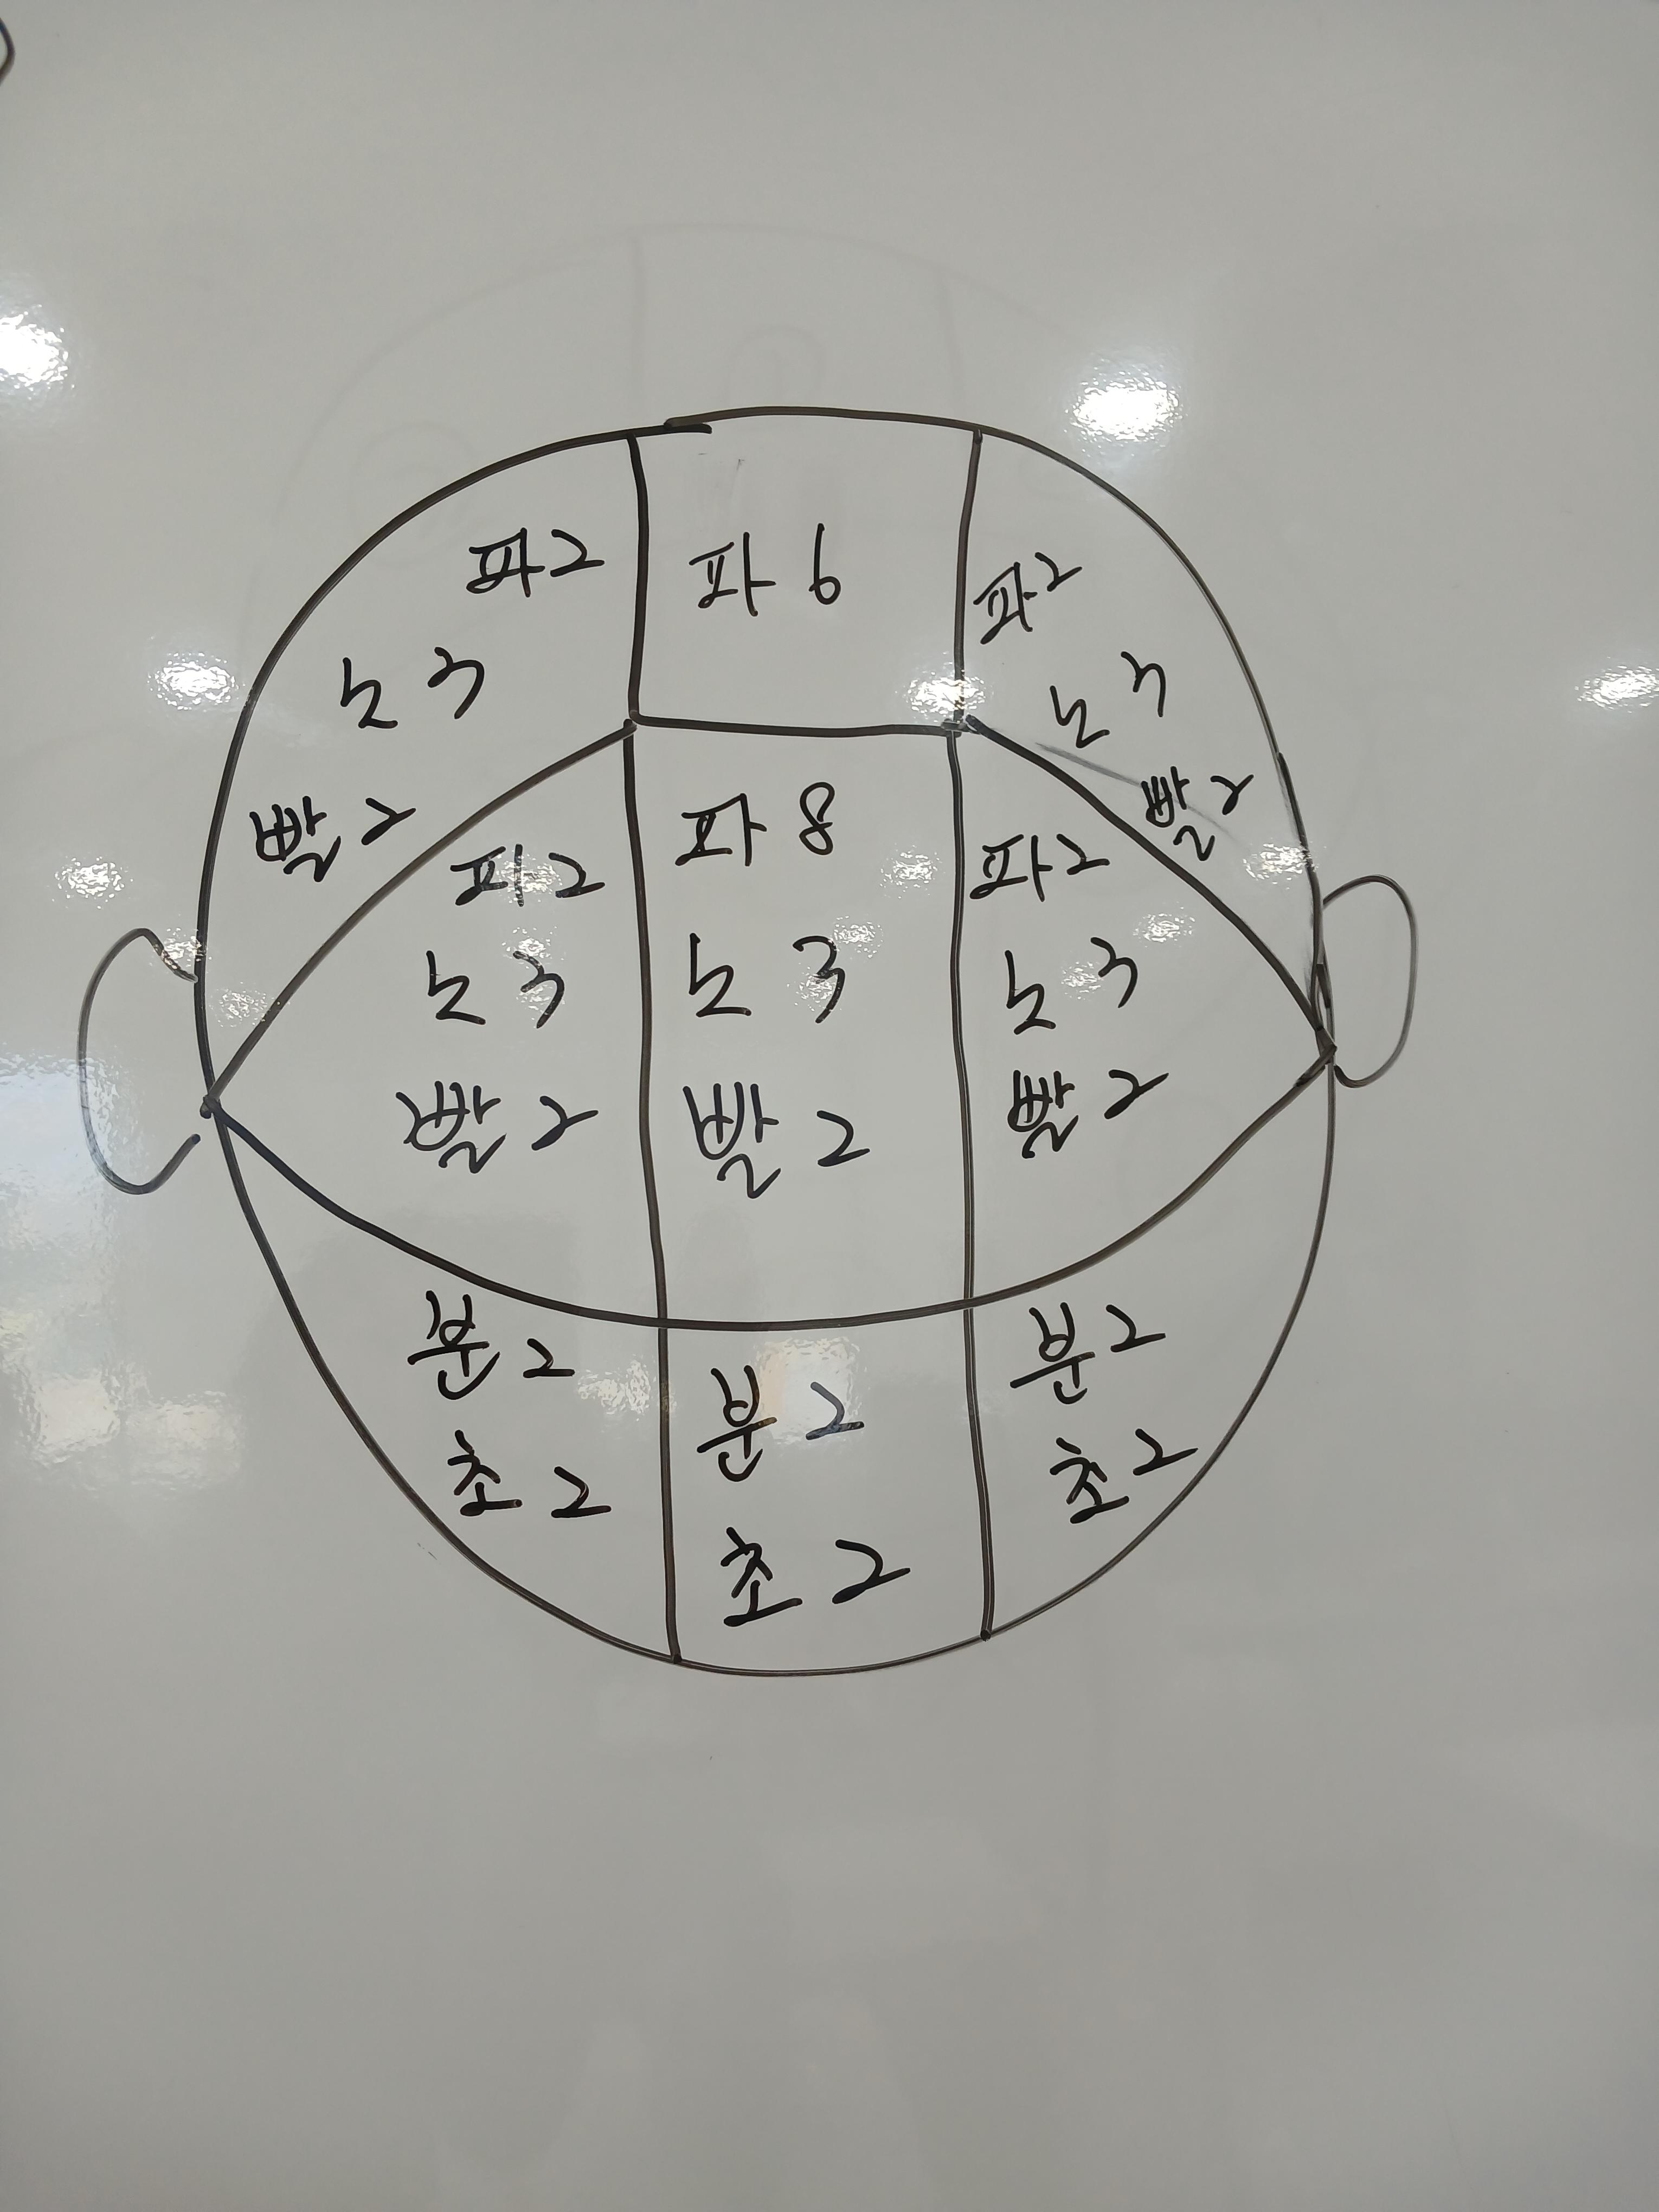 파2
노3
빨2
파 6
파2
노3
빨2
파2
노3
빨2
파 8
노 3
빨 2
파2
노3
빨2
분2
초2
분2
초2
분2
초2